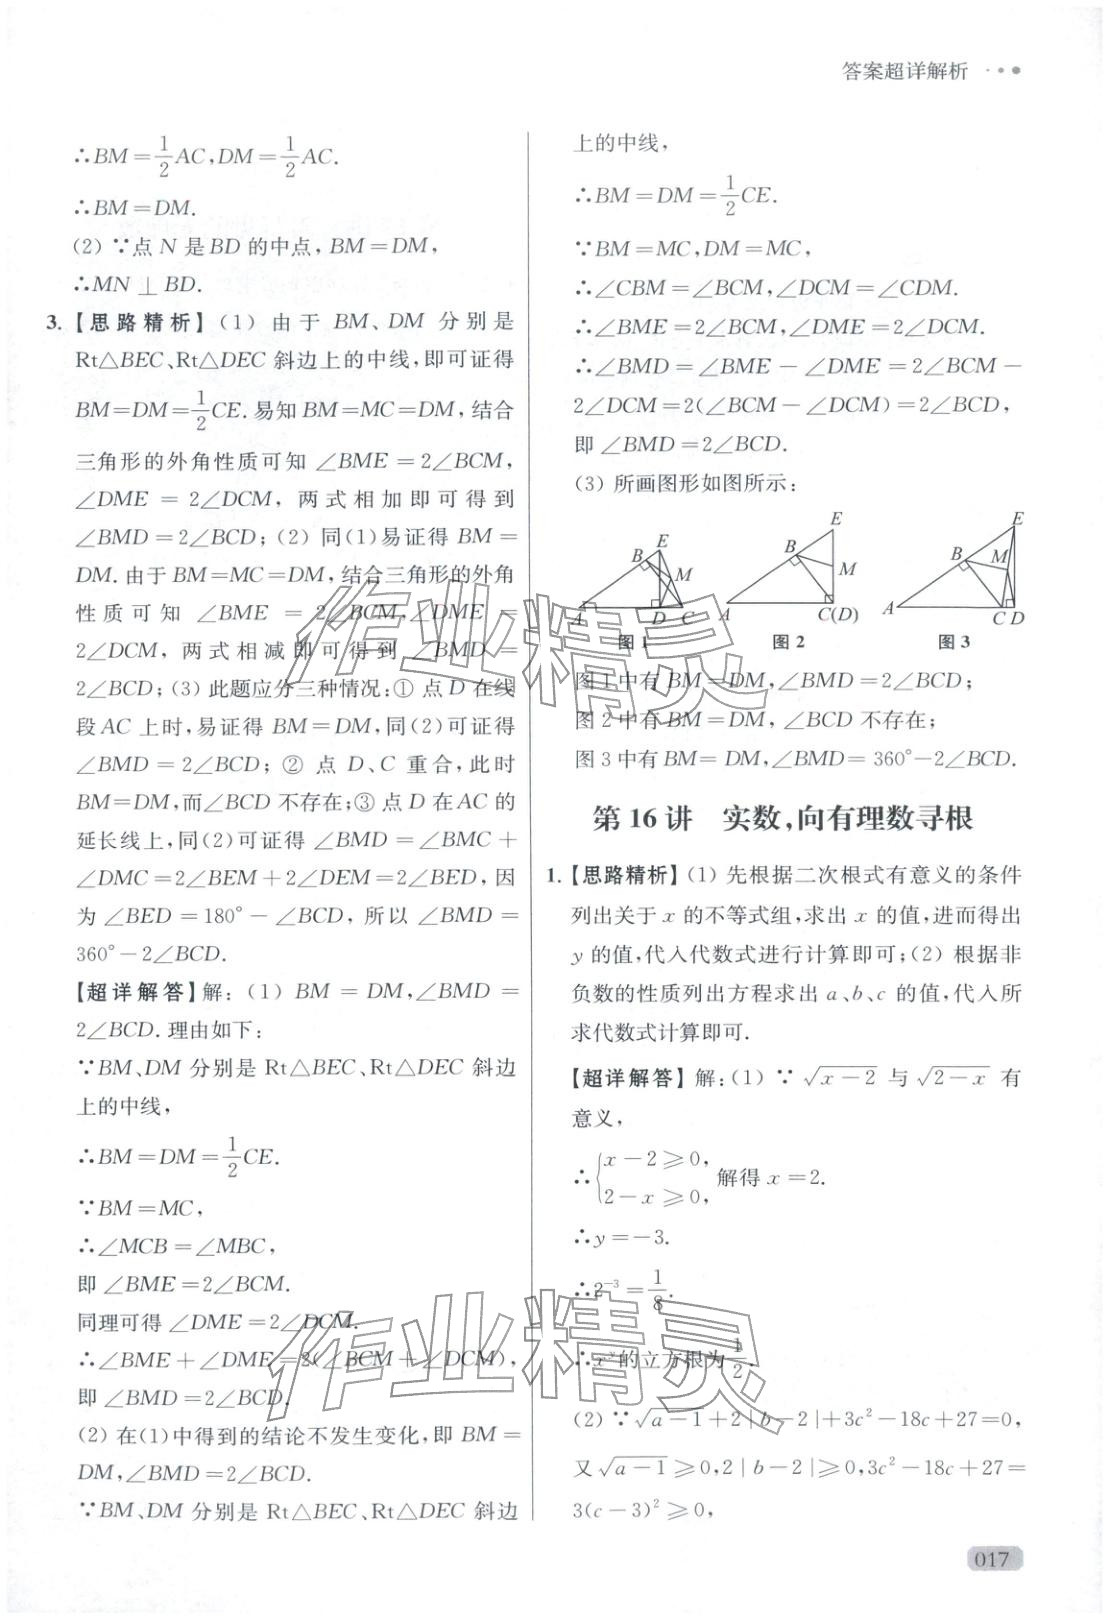 答案超详解析
∴BM=1/2AC,DM=1/2AC.
∴BM=DM.
(2) ∵点 N 是 BD 的中点, BM=DM,
∴MN⊥BD.
3.【思路精析】(1) 由于 BM、DM 分别是
Rt△BEC、Rt△DEC 斜边上的中线,即可证得
BM=DM=1/2CE. 易知 BM=MC=DM, 结合
三角形的外角性质可知 ∠BME=2∠BCM,
∠DME=2∠DCM, 两式相加即可得到
∠BMD=2∠BCD; (2) 同(1)易证得 BM=
DM. 由于 BM=MC=DM, 结合三角形的外角
性质可知 ∠BME=2∠BCM,∠DME=
2∠DCM, 两式相减即可得到 ∠BMD=
2∠BCD; (3) 此题应分三种情况:① 点 D 在线
段 AC 上时,易证得 BM=DM,同(2)可证得
∠BMD=2∠BCD; ② 点 D、C 重合,此时
BM=DM,而∠BCD 不存在;③ 点 D 在 AC 的
延长线上,同(2)可证得 ∠BMD=∠BMC+
∠DMC=2∠BEM+2∠DEM=2∠BED, 因
为 ∠BED=180°-∠BCD, 所以 ∠BMD=
360°-2∠BCD.
【超详解答】解:(1) BM=DM,∠BMD=
2∠BCD. 理由如下:
∵BM、DM 分别是 Rt△BEC、Rt△DEC 斜边
上的中线,
∴BM=DM=1/2CE.
∵BM=MC,
∴∠MCB=∠MBC,
即 ∠BME=2∠BCM.
同理可得 ∠DME=2∠DCM.
∴∠BME+∠DME=2(∠BCM+∠DCM),
即 ∠BMD=2∠BCD.
(2) 在(1)中得到的结论不发生变化,即 BM=
DM,∠BMD=2∠BCD.
∵BM、DM 分别是 Rt△BEC、Rt△DEC 斜边
上的中线,
∴BM=DM=1/2CE.
∵BM=MC,DM=MC,
∴∠CBM=∠BCM,∠DCM=∠CDM.
∴∠BME=2∠BCM,∠DME=2∠DCM.
∴∠BMD=∠BME-∠DME=2∠BCM-
2∠DCM=2(∠BCM-∠DCM)=2∠BCD,
即 ∠BMD=2∠BCD.
(3) 所画图形如图所示:
A B E M D C
图 1
A B E M C(D)
图 2
A B E M C D
图 3
图 1 中有 BM=DM,∠BMD=2∠BCD;
图 2 中有 BM=DM,∠BCD 不存在;
图 3 中有 BM=DM,∠BMD=360°-2∠BCD.
第 16 讲 实数,向有理数寻根
1.【思路精析】(1) 先根据二次根式有意义的条件
列出关于 x 的不等式组,求出 x 的值,进而得出
y 的值,代入代数式进行计算即可;(2) 根据非
负数的性质列出方程求出 a、b、c 的值,代入所
求代数式计算即可.
【超详解答】解:(1) ∵√(x-2) 与 √(2-x) 有
意义,
∴{x-2≥0, 2-x≥0, 解得 x=2.
∴y=-3.
∴2⁻³=1/8.
∴xʸ的立方根为1/2.
(2) ∵√(a-1)+2|b-2|+3c²-18c+27=0,
又 √(a-1)≥0,2|b-2|≥0,3c²-18c+27=
3(c-3)²≥0,
017
作业精灵
作业精灵